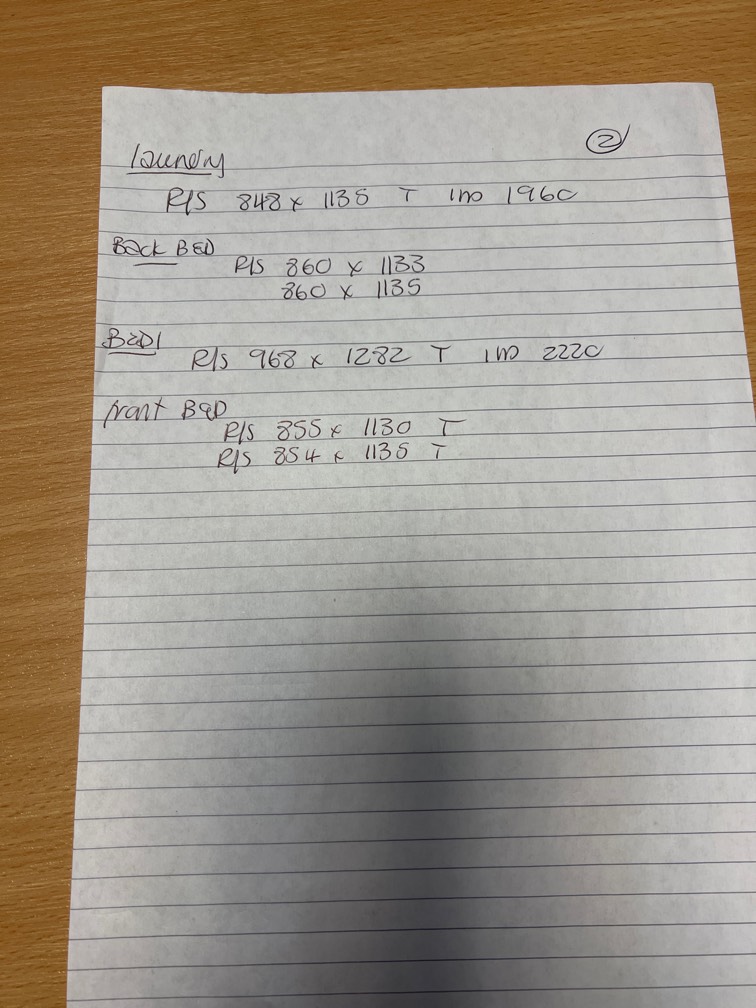 ②
laundry
R/S 848 x 1135 T IND 1960
Back BED
R/S 860 x 1133
860 x 1135
BED1
R/S 968 x 1282 T IND 2220
front BED
R/S 855 x 1130 T
R/S 854 x 1135 T